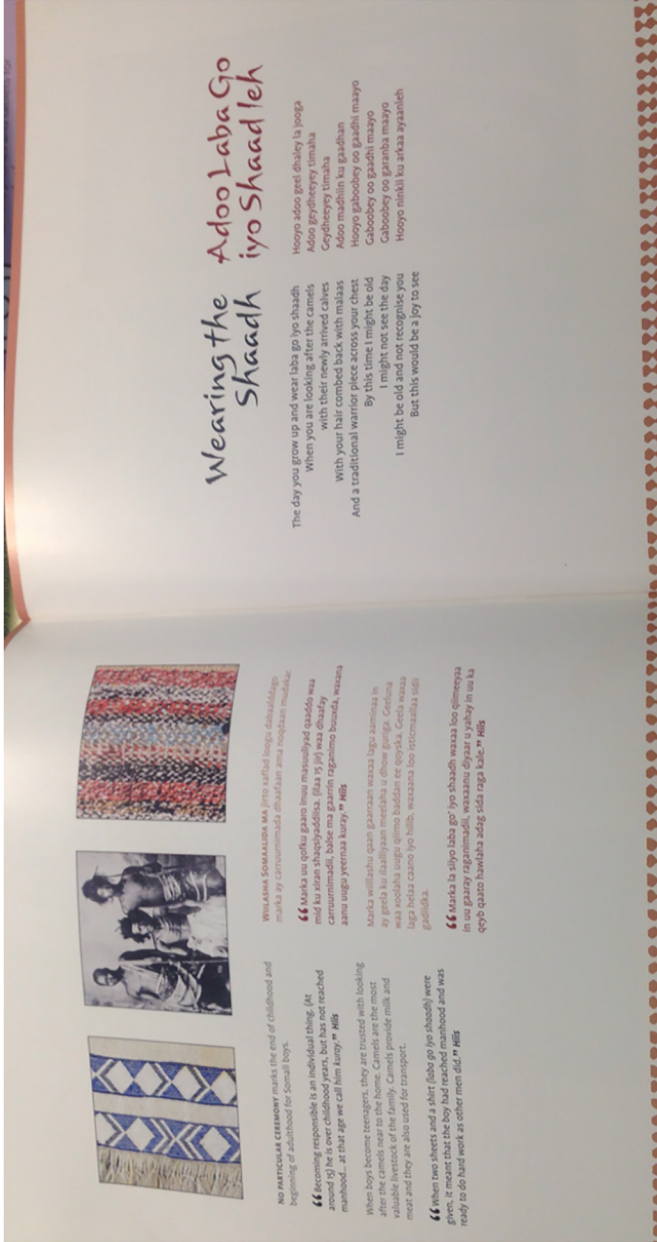 NO PARTICULAR CEREMONY marks the end of childhood and
beginning of adulthood for Somali boys.
❝Becoming responsible is an individual thing. (At
around 15) he is over childhood years, but has not reached
manhood... at that age we call him kuray.❞ Hiis
When boys become teenagers, they are trusted with looking
after the camels near to the home. Camels are the most
valuable livestock of the family. Camels provide milk and
meat and they are also used for transport.
❝When two sheets and a shirt (laba go iyo shaadh) were
given, it meant that the boy had reached manhood and was
ready to do hard work as other men did.❞ Hiis
WIILASHA SOMAALIDA MA jirto xaflad loogu dabaaldago
marka ay carruurnimada dhaafaan ama noqdaan mudakar.
❝Marka uu qofku gaaro inuu masuuliyad qaaddo waa
mid ku xiran shaqsiyaddiisa. (Ilaa 15 jir) waa dhaafay
carruurnimadii, balse ma gaarrin raganimo buuxda, waxana
aanu uugu yeernaa kuray.❞ Hiis
Marka wiilashu qaan gaarraan waxaa lagu aaminaa in
ay geela ku ilaaliyaan meelaha u dhow guriga. Geeluna
waa xoolaha uugu qiimo baddan ee qoyska. Geela waxaa
laga helaa caano iyo hilib, waxaana loo isticmaallaa sidii
gadiidka.
❝Marka la siiyo laba go' iyo shaadh waxaa loo qiimeeyaa
in uu gaaray raganimadii, waxaanu diyaar u yahay in uu ka
qeyb qaato hawlaha adag sida raga kale.❞ Hiis
Wearing the
Shaadh
The day you grow up and wear laba go iyo shaadh
When you are looking after the camels
with their newly arrived calves
With your hair combed back with malaas
And a traditional warrior piece across your chest
By this time I might be old
I might not see the day
I might be old and not recognise you
But this would be a joy to see
Adoo Laba Go
iyo Shaad leh
Hooyo adoo geel dhaley la jooga
Adoo geydheeyey timaha
Geydheeyey timaha
Adoo madhiin ku gaadhan
Hooyo gaboobey oo gaadhi maayo
Gaboobey oo gaadhi maayo
Gaboobey oo garanba maayo
Hooyo ninkii ku arkaa ayaanleh